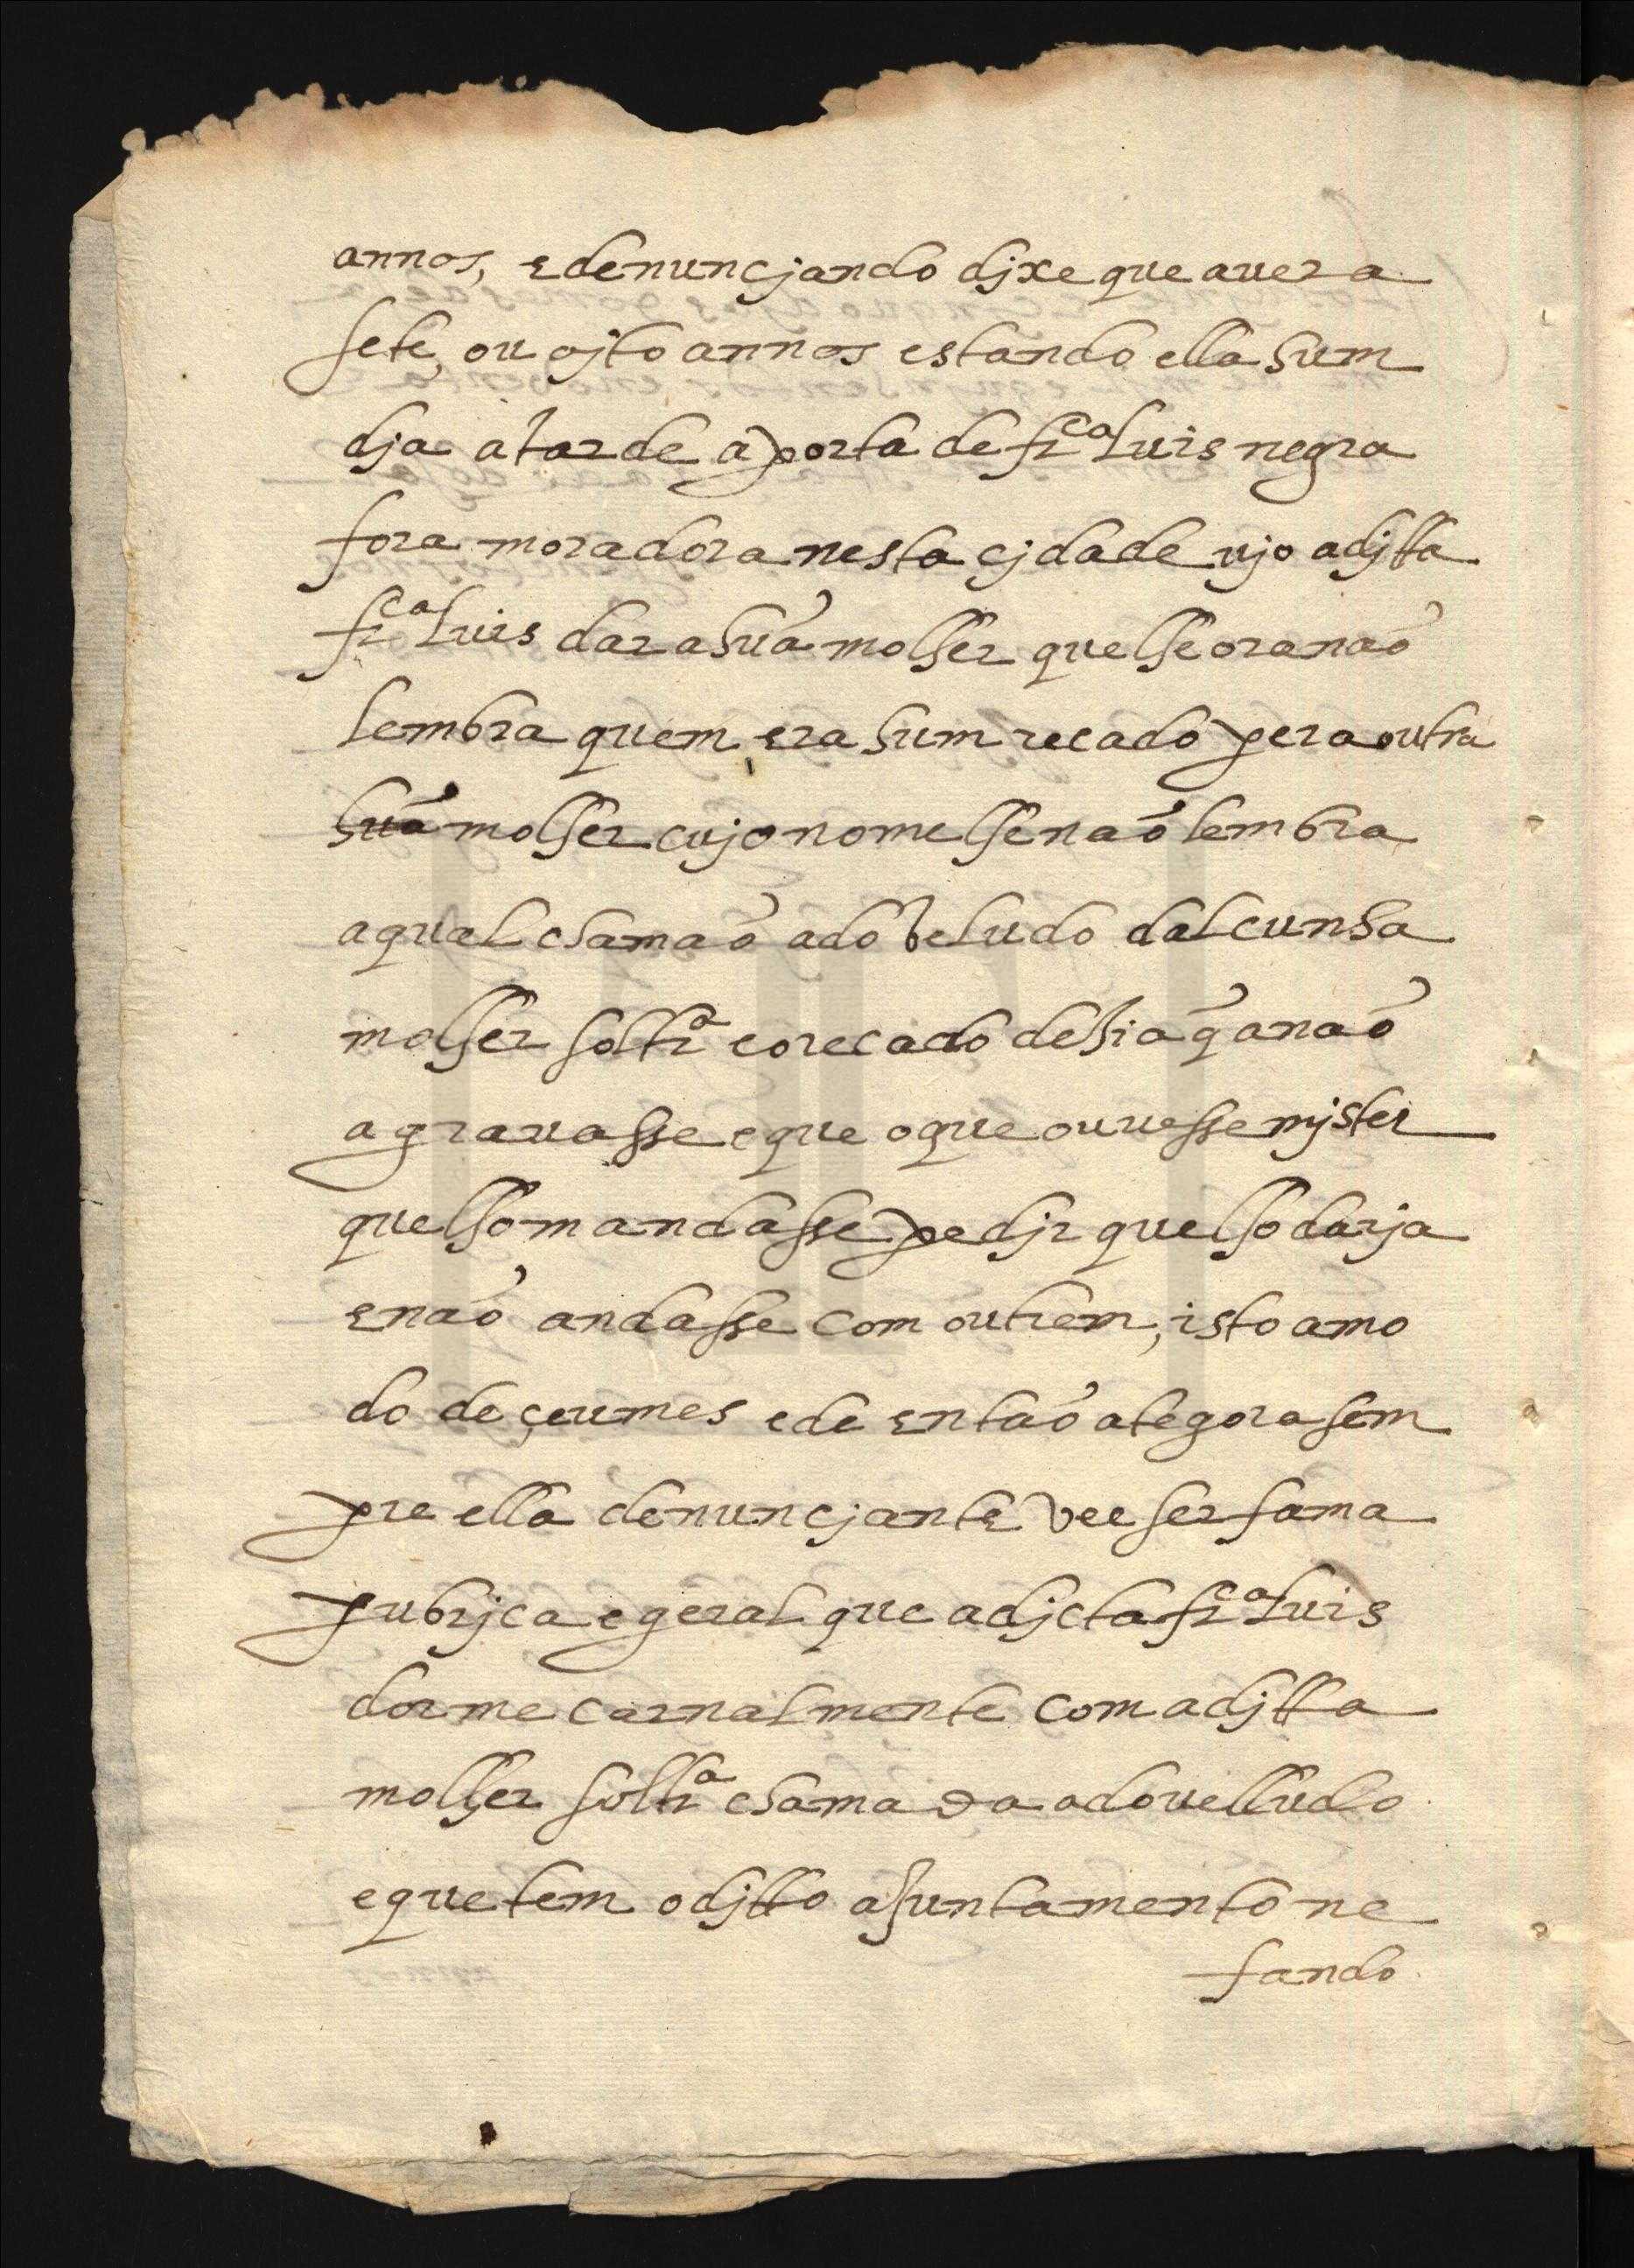 annos, e denuncjando djxe que auera
sete, ou ojto annos estando ella hum
dja a tarde a porta de frca luis negra
forra moradora nesta cjdade vjo a djtta
frca luis dar a hũa molher que lhe ora não
lembra quem era hum recado pera outra
hũa molher cujo nome lhe não lembra
a qual chamão a do veludo dalcunha
molher soltra e o recado dehia q̃ a não
agrauasse e que o que ouuesse mjster
que lho mandasse pedjr que lho darja
e não andasse com outrem, isto a mo
do de çeumes e de então ategora sem
pre ella denuncjante vee ser fama
pubrjca e geral que a djcta frca luis
dorme carnalmente com a djtta
molher soltra chamada a do uelludo
e que tem o djtto ajuntamento ne
fando